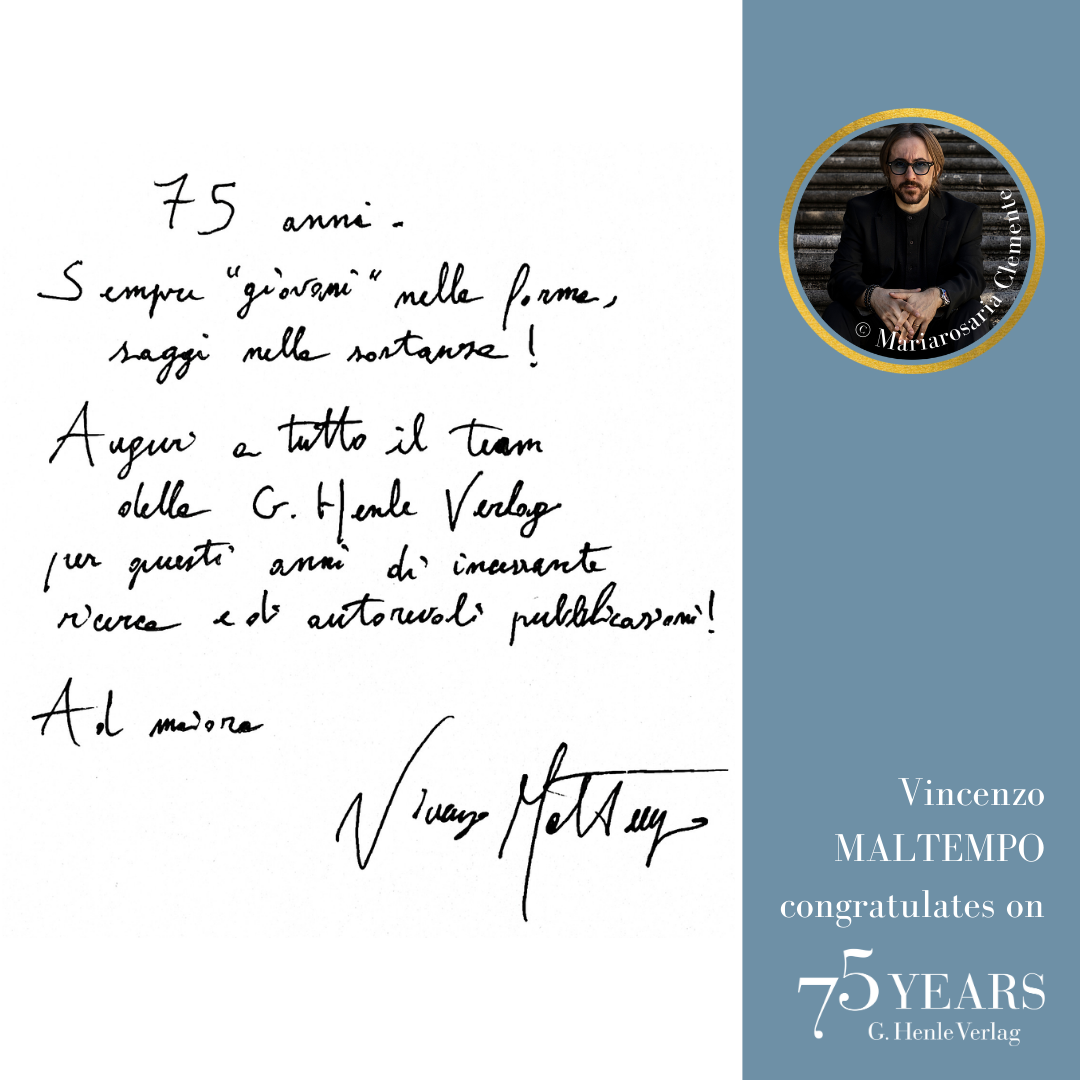 75 anni.
Sempre "giovani" nella forma,
saggi nella sostanza!
Auguri a tutto il team
della G. Henle Verlag
per questi anni di incessante
ricerca e di autorevoli pubblicazioni!
Ad maiora
Vincenzo Maltempo
© Mariarosaria Clemente
Vincenzo
MALTEMPO
congratulates on
75 YEARS
G. Henle Verlag